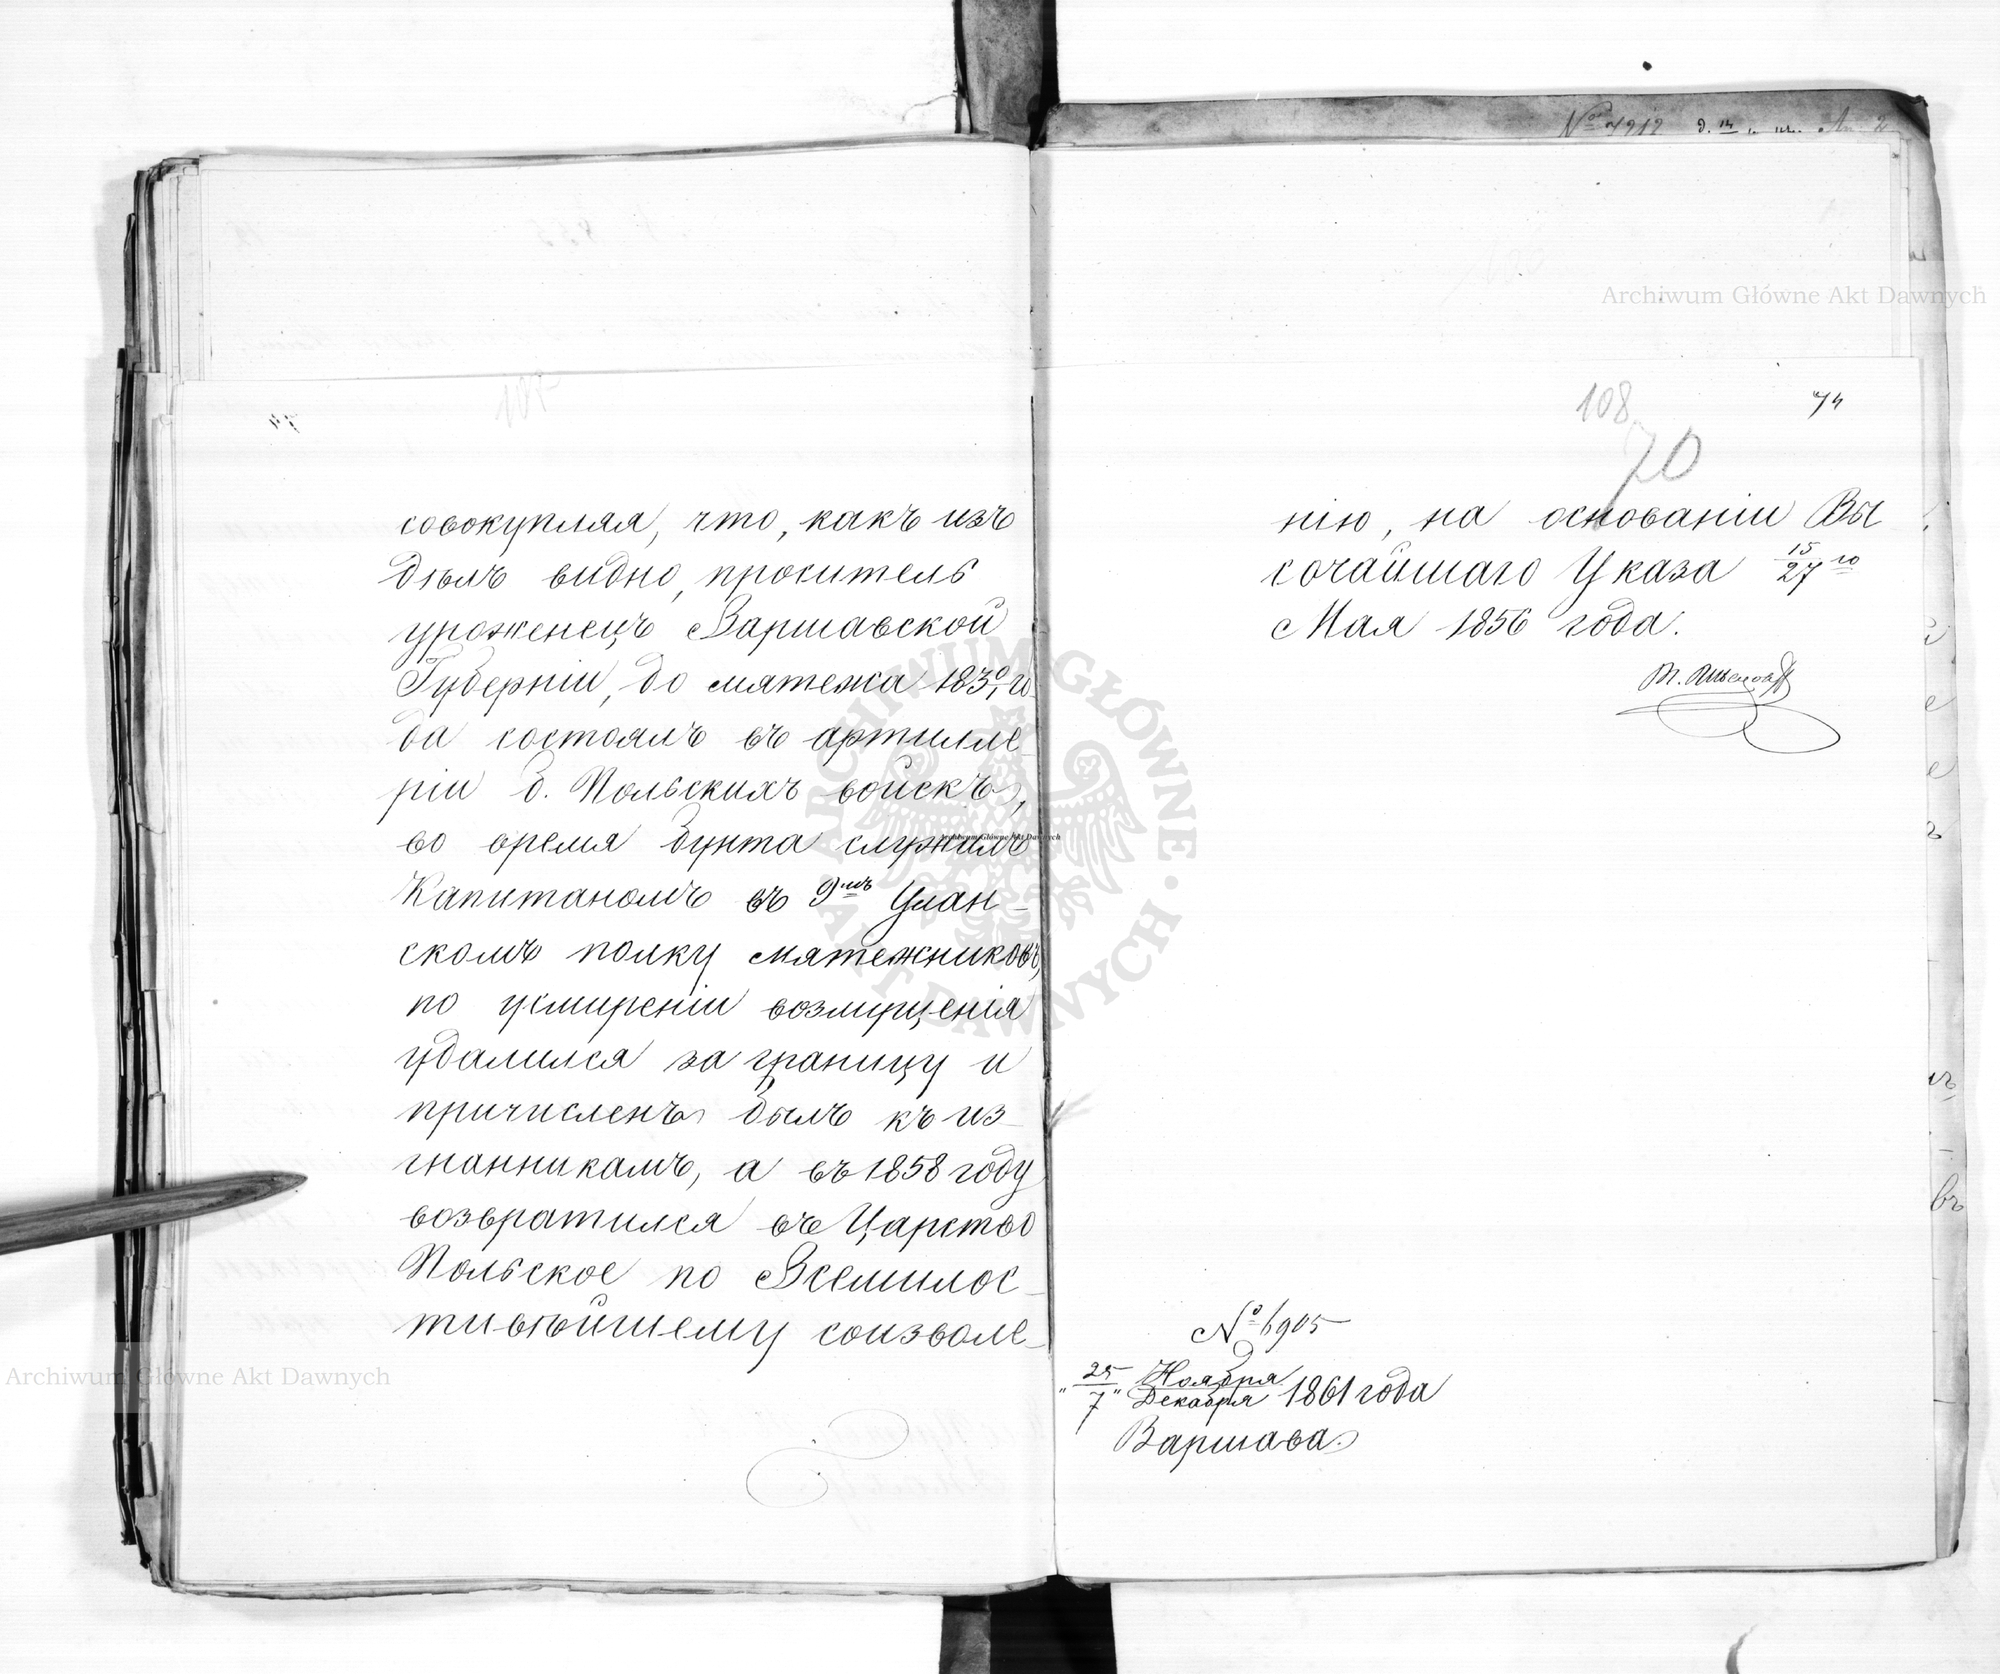 совокупляя, что, какъ изъ
дѣлъ видно, проситель
уроженецъ Варшавской
Губерніи, до мятежа 1830/1 го
да состоялъ въ артилле
ріи б. Польскихъ войскъ,
во время бунта служилъ
Капитаномъ въ 9мъ Улан-
скомъ полку мятежниковъ,
по усмиреніи возмущенія
удалился за границу и
причисленъ былъ къ из-
гнанникамъ, а въ 1858 году
возвратился въ Царство
Польское по Всемилос-
тивѣйшему соизволе-
108
74
70
нію, на основаніи Вы
сочайшаго Указа 15/27го
Мая 1856 года.
№ 6905
"25/7" Ноября/Декабря 1861 года
Варшава.
Archiwum Główne Akt Dawnych
Archiwum Główne Akt Dawnych
Archiwum Główne Akt Dawnych
ARCHIWUM GŁÓWNE AKT DAWNYCH